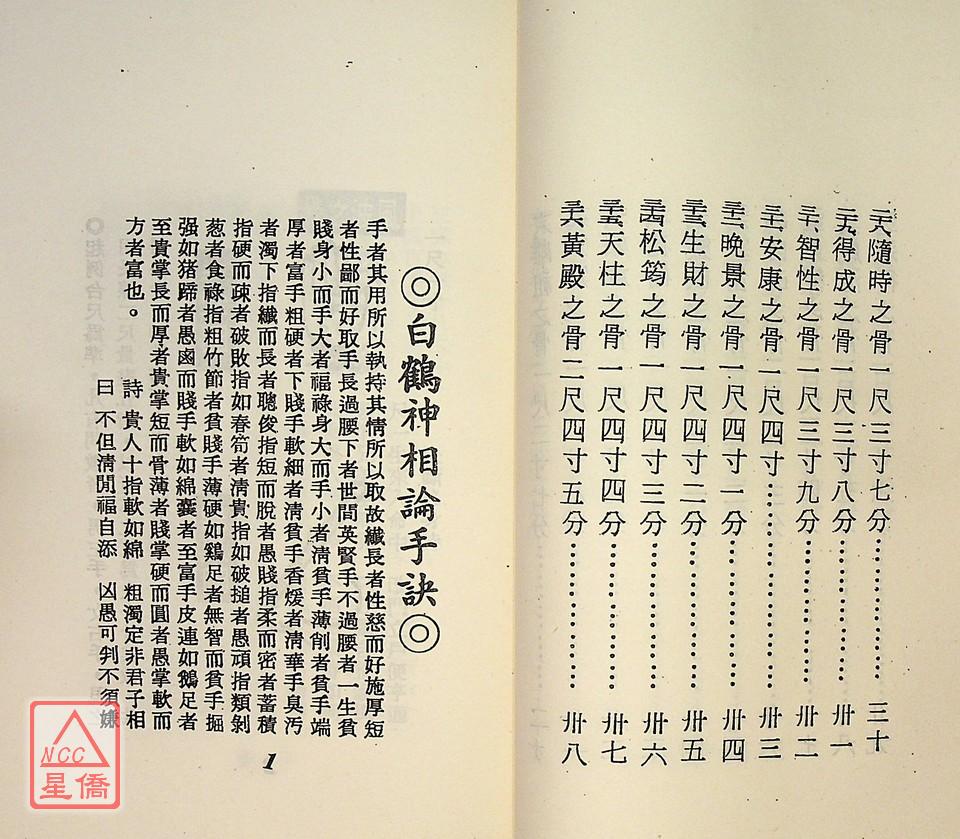 二八隨時之骨一尺三寸七分……………三十
二九得成之骨一尺三寸八分……………卅一
三十智性之骨一尺三寸九分……………卅二
三一安康之骨一尺四寸…………………卅三
三二晚景之骨一尺四寸一分……………卅四
三三生財之骨一尺四寸二分……………卅五
三四松筠之骨一尺四寸三分……………卅六
三五天柱之骨一尺四寸四分……………卅七
三六黃殿之骨二尺四寸五分……………卅八
◎白鶴神相論手訣◎
手者其用所以執持其情所以取故纖長者性慈而好施厚短
者性鄙而好取手長過腰下者世間英賢手不過腰者一生貧
賤身小而手大者福祿身大而手小者清貧手薄削者貧手端
厚者富手粗硬者下賤手軟細者清貧手香煖者清華手臭汚
者濁下指纖而長者聰俊指短而脫者愚賤指柔而密者蓄積
指硬而疎者破敗指如春筍者清貴指如破搥者愚頑指類剝
葱者食祿指粗竹節者貧賤手薄硬如鷄足者無智而貧手掘
强如猪蹄者愚鹵而賤手軟如綿囊者至富手皮連如鵝足者
至貴掌長而厚者貴掌短而骨薄者賤掌硬而圓者愚掌軟而
方者富也。
詩 貴人十指軟如綿 粗濁定非君子相
曰 不但淸閒福自添 凶愚可判不須嫌
1
NCC
星僑